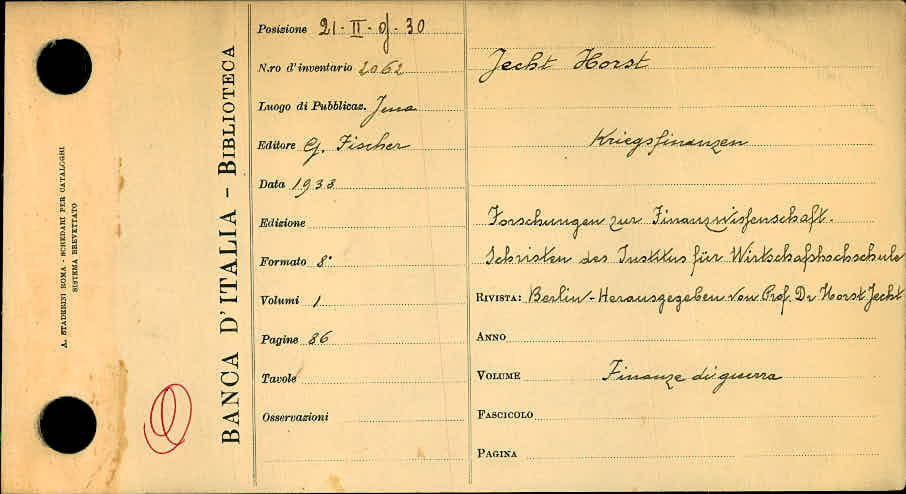 A. STADERINI ROMA - SCHEDARI PER CATALOGHI
SISTEMA BREVETTATO
BANCA D'ITALIA - BIBLIOTECA
Posizione 21-II-g-30
N.ro d'inventario 2062
Luogo di Pubblicaz. Jena
Editore G. Fischer
Data 1933
Edizione
Formato 8°
Volumi 1
Pagine 86
Tavole
Osservazioni
Jecht Horst
Kriegsfinanzen
Forschungen zur Finanzwissenschaft.
Schriften des Institus für Wirtschafhochschule
RIVISTA: Berlin - Herausgegeben von Prof. Dr Horst Jecht
ANNO
VOLUME Finanze di guerra
FASCICOLO
PAGINA